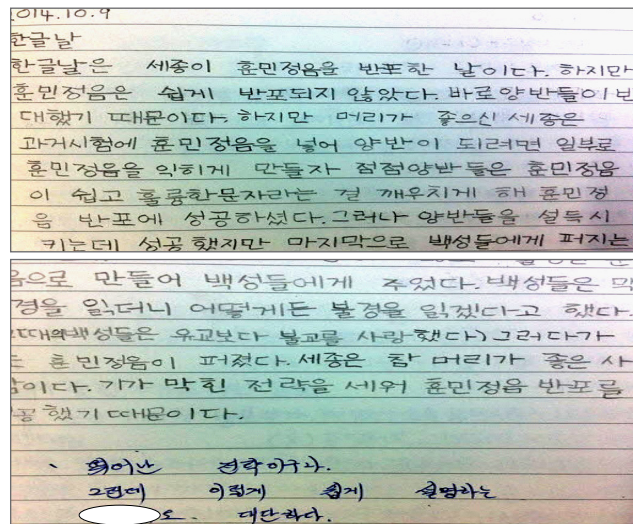 2014.10.9
한글날
한글날은 세종이 훈민정음을 반포한 날이다. 하지만
훈민정음은 쉽게 반포되지 않았다. 바로양반들이 반
대했기 때문이다. 하지만 머리가 좋으신 세종은
과거시험에 훈민정음을 넣어 양반이 되려면 일부로
훈민정음을 익히게 만들자 점점양반들은 훈민정음
이 쉽고 훌륭한문자라는 걸 깨우치게 해 훈민정
음 반포에 성공하셨다. 그러나 양반들을 설득시
키는데 성공했지만 마지막으로 백성들에게 퍼지는
음으로 만들어 백성들에게 주었다. 백성들은 막
경을 읽더니 어떻게든 불경을 읽겠다고 했다.
백성들은 유교보다 불교를 사랑했다) 그러다가
훈민정음이 퍼졌다. 세종은 참 머리가 좋은 사
람이다. 기가 막힌 전략을 세워 훈민정음 반포를
공했기 때문이다.
뛰어난 전략이구나.
그런데 이렇게 쉽게 설명하는
도 대단하다.